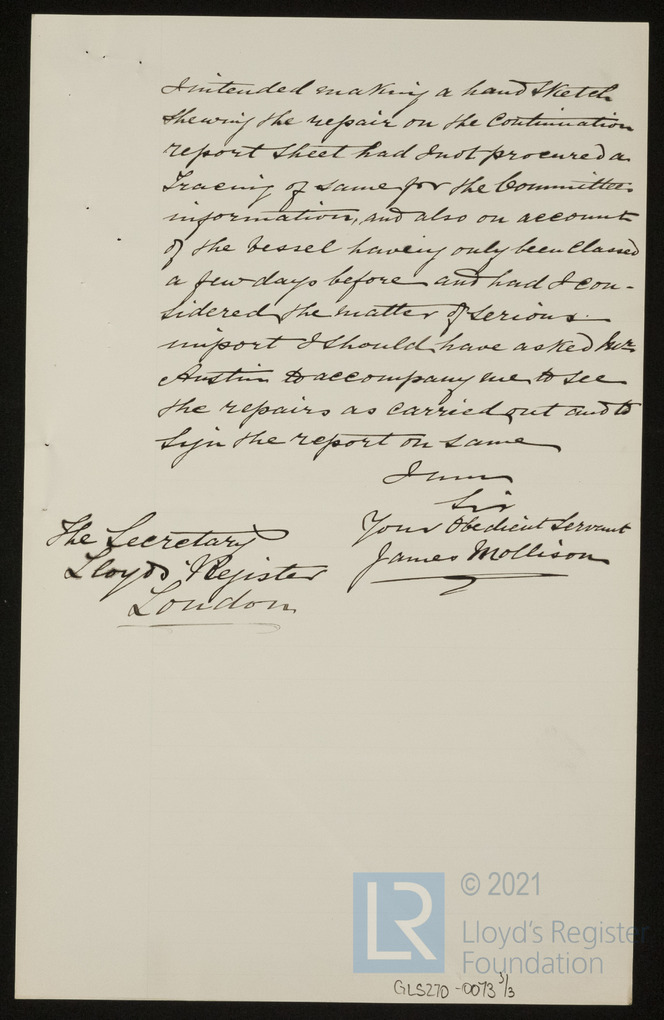 I intended making a hand sketch
shewing the repair on the Continuation
report sheet had I not procured a
Tracing of same for the Committees
information, and also on account
of the vessel having only been Classed
a few days before and had I con-
sidered the matter of serious
import I should have asked Mr
Austin to accompany me to see
the repairs as carried out and to
sign the report on same
I am
Sir
Your Obedient Servant
James Mollison
The Secretary
Lloyds Register
London
LR
© 2021
Lloyd's Register
Foundation
GLS270-0073 3/3